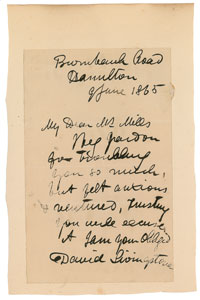 Burnbank Road
Hamilton
9 June 1865
My Dear Mr Mills
I beg pardon
for troubling
you so much,
but felt anxious
ventured, trusting
you will excuse
it I am your Obliged
David Livingstone